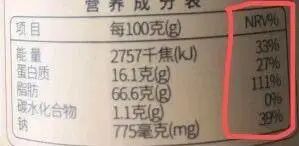 营养成分表
项目 每100克(g) NRV%
能量 2757千焦(kJ) 33%
蛋白质 16.1克(g) 27%
脂肪 66.6克(g) 111%
碳水化合物 1.1克(g) 0%
钠 775毫克(mg) 39%